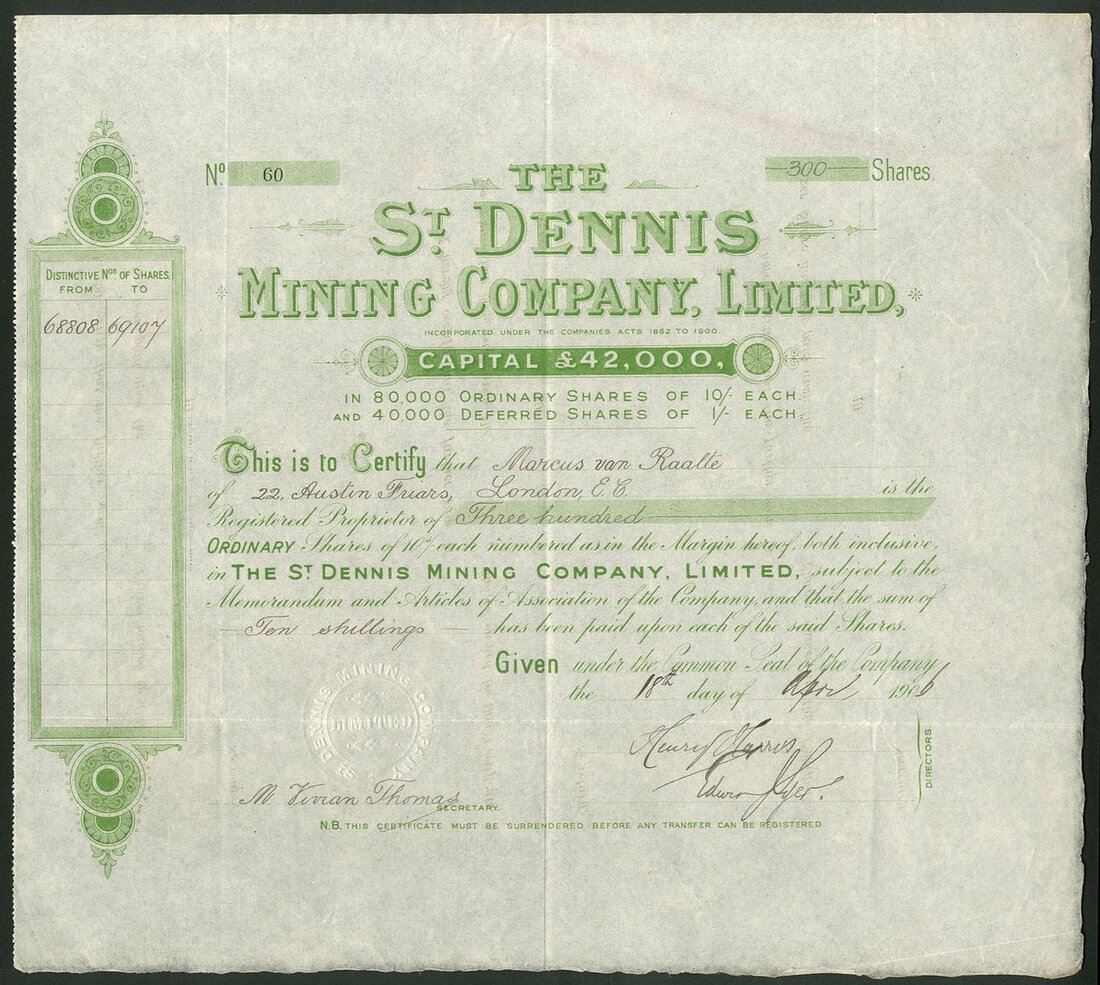 No. 60
300 Shares
THE
ST. DENNIS
MINING COMPANY, LIMITED,
INCORPORATED UNDER THE COMPANIES ACTS 1862 TO 1900.
CAPITAL £42,000,
IN 80,000 ORDINARY SHARES OF 10/- EACH.
AND 40,000 DEFERRED SHARES OF 1/- EACH.
DISTINCTIVE Nos. OF SHARES.
FROM TO
68808 69107
This is to Certify that Marcus van Raalte
of 22, Austin Friars, London, E.C. is the
Registered Proprietor of Three hundred
ORDINARY Shares of 10/- each numbered as in the Margin hereof, both inclusive,
in THE ST. DENNIS MINING COMPANY, LIMITED, subject to the
Memorandum and Articles of Association of the Company, and that the sum of
Ten shillings has been paid upon each of the said Shares.
Given under the Common Seal of the Company
the 18th day of April 1906
ST DENNIS MINING COMPANY
LIMITED
Henry
Edwin
DIRECTORS.
M Vivian Thomas
SECRETARY.
N.B. THIS CERTIFICATE MUST BE SURRENDERED BEFORE ANY TRANSFER CAN BE REGISTERED